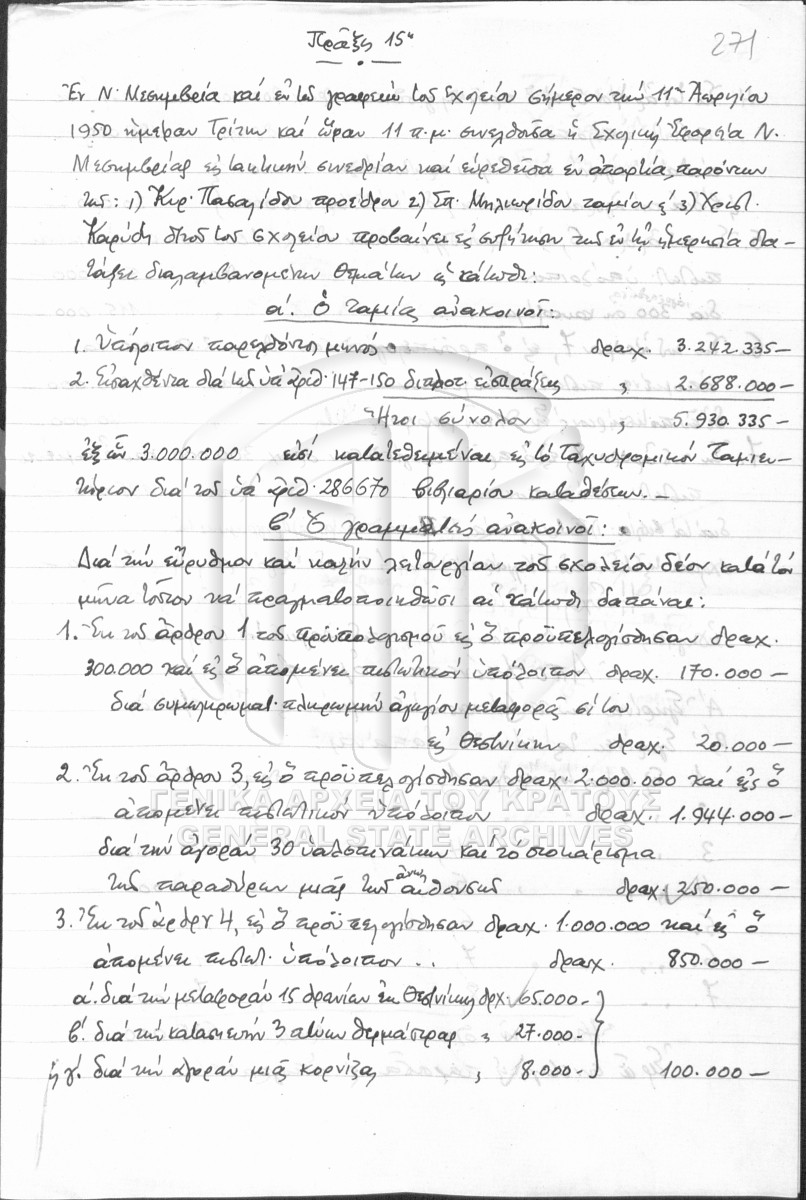 Πρᾶξις 15η
271
Ἐν Ν. Μεσημβρίᾳ καί ἐν τῷ γραφείῳ τοῦ σχολείου σήμερον τήν 11ην Ἀπριλίου
1950 ἡμέραν Τρίτην καί ὥραν 11 π.μ. συνελθοῦσα ἡ Σχολική Ἐφορεία Ν.
Μεσημβρίας εἰς τακτικήν συνεδρίαν καί εὑρεθεῖσα ἐν ἀπαρτίᾳ, παρόντων
τῶν: 1) Κυρ. Πασαλίδου προέδρου 2) Σπ. Μηλιωρίδου ταμίου & 3) Χριστ.
Καρύδη δ/ντοῦ τοῦ σχολείου προβαίνει εἰς συζήτησιν τῶν ἐν τῇ ἡμερησίᾳ δια-
τάξει διαλαμβανομένων θεμάτων ὡς κάτωθι:
α'. Ὁ ταμίας ἀνακοινοῖ:
1. Ὑπόλοιπον παρελθόντος μηνός δραχ. 3.242.335-
2. Εἰσαχθέντα διά τῶν ὑπ' ἀριθ. 147-150 διπλοτ. εἰσπράξεως " 2.688.000-
Ἤτοι σύνολον " 5.930.335-
ἐξ ὧν 3.000.000 εἰσί κατατεθειμέναι εἰς τό Ταχυδρομικόν Ταμιευ-
τήριον διά τοῦ ὑπ' ἀριθ. 286670 βιβλιαρίου καταθέσεων.-
β' Ὁ γραμματεύς ἀνακοινοῖ:
Διά τήν εὔρυθμον καί καλήν λειτουργίαν τοῦ σχολείου δέον κατά τόν
μῆνα τοῦτον νά πραγματοποιηθῶσι αἱ κάτωθι δαπάναι:
1. Ἐκ τοῦ ἄρθρου 1 τοῦ προϋπολογισμοῦ εἰς ὅ προϋπελογίσθησαν δραχ.
300.000 καί εἰς ὅ ἀπομένει πιστωτικόν ὑπόλοιπον δραχ. 170.000-
διά συμπληρωματ. πληρωμήν ἀγωγίου μεταφορᾶς σίτου
εἰς Θεσ/νίκην δραχ. 20.000-
2. Ἐκ τοῦ ἄρθρου 3, εἰς ὅ προϋπελογίσθησαν δραχ. 2.000.000 καί εἰς ὅ
ἀπομένει πιστωτικόν ὑπόλοιπον δραχ. 1.944.000-
διά τήν ἀγοράν 30 ὑαλοπινάκων καί το στοκάρισμα
τῶν παραθύρων μιᾶς τῶν ἄνω αἰθουσῶν δραχ. 250.000-
3. Ἐκ τοῦ ἄρθρου 4, εἰς ὅ προϋπελογίσθησαν δραχ. 1.000.000 καί εἰς ὅ
ἀπομένει πιστωτ. ὑπόλοιπον .. δραχ. 850.000-
α'. διά τήν μεταφοράν 15 θρανίων ἐκ Θεσ/νίκης δρχ. 65.000-
β'. διά τήν κατασκευήν 3 θερμάστρας " 27.000-
& γ'. διά τήν ἀγοράν μιᾶς κορνίζας " 8.000- 100.000-
ΓΕΝΙΚΑ ΑΡΧΕΙΑ ΤΟΥ ΚΡΑΤΟΥΣ
GENERAL STATE ARCHIVES